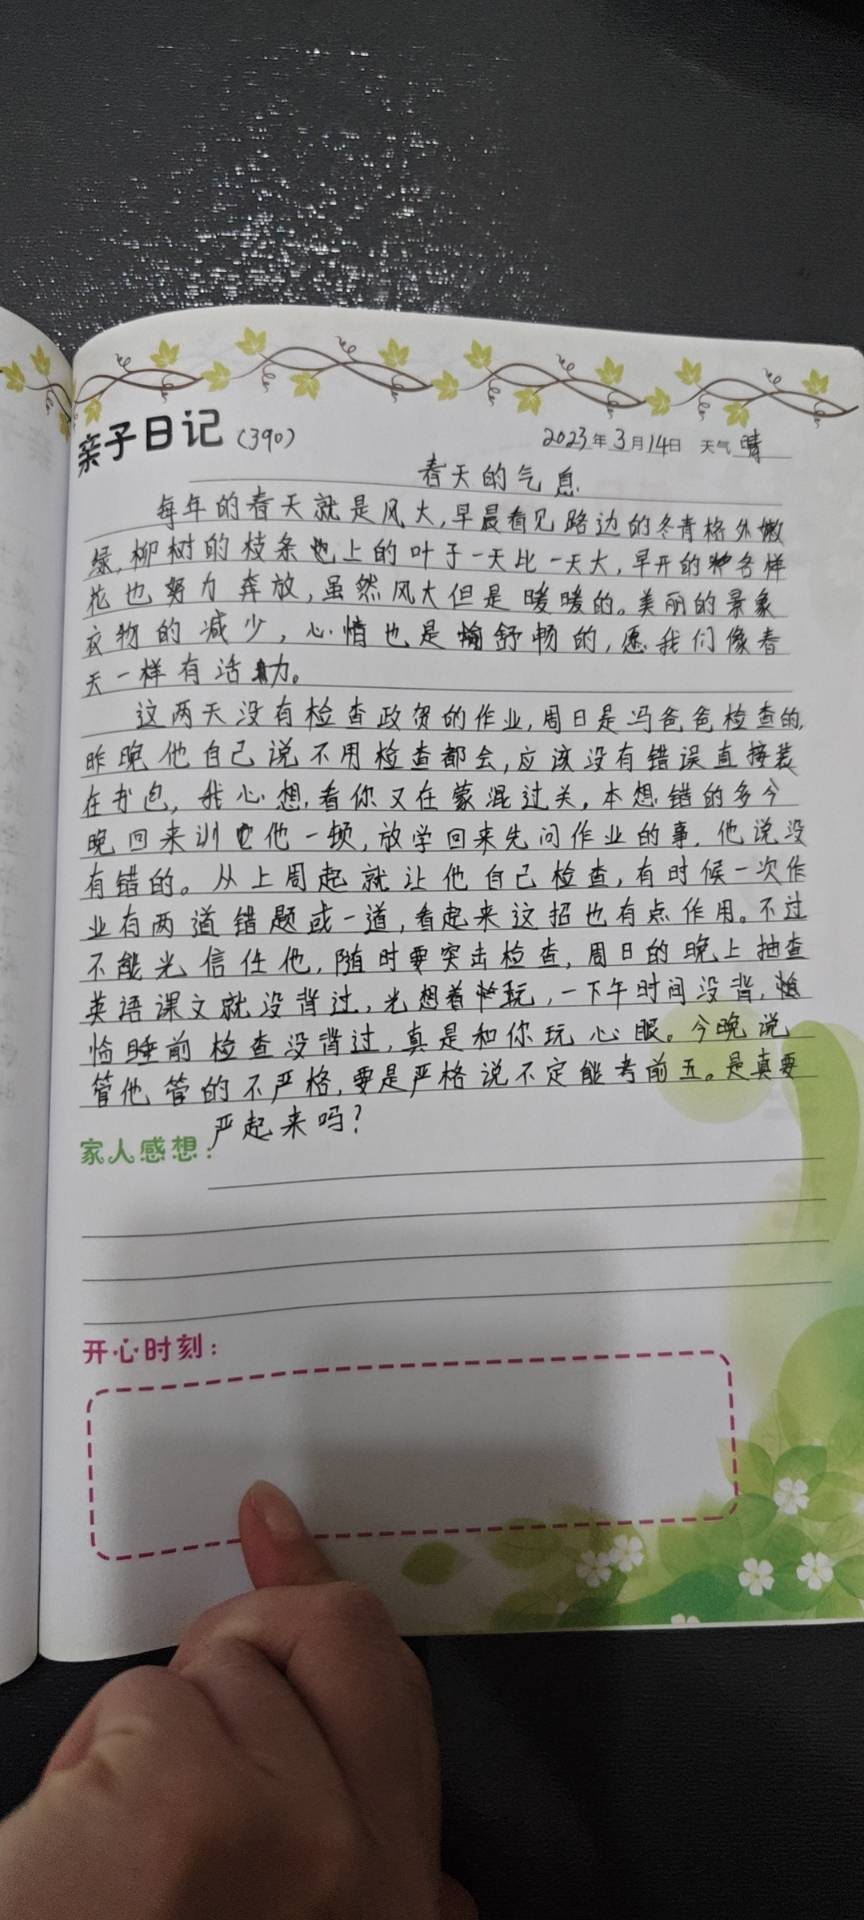 亲子日记（390） 2023年3月14日 天气 晴
春天的气息
每年的春天就是风大，早晨看见路边的冬青格外嫩
绿，柳树的枝条上的叶子一天比一天大，早开的各样
花也努力奔放，虽然风大但是暖暖的。美丽的景象
衣物的减少，心情也是舒畅的，愿我们像春
天一样有活力。
这两天没有检查政贺的作业，周日是冯爸爸检查的，
昨晚他自己说不用检查都会，应该没有错误直接装
在书包，我心想，看你又在蒙混过关，本想错的多今
晚回来训他一顿，放学回来先问作业的事，他说没
有错的。从上周起就让他自己检查，有时候一次作
业有两道错题或一道，看起来这招也有点作用。不过
不能光信任他，随时要突击检查，周日的晚上抽查
英语课文就没背过，光想着玩，一下午时间没背，
临睡前检查没背过，真是和你玩心眼。今晚说
管他管的不严格，要是严格说不定能考前五。是真要
严起来吗？
家人感想：
开心时刻：